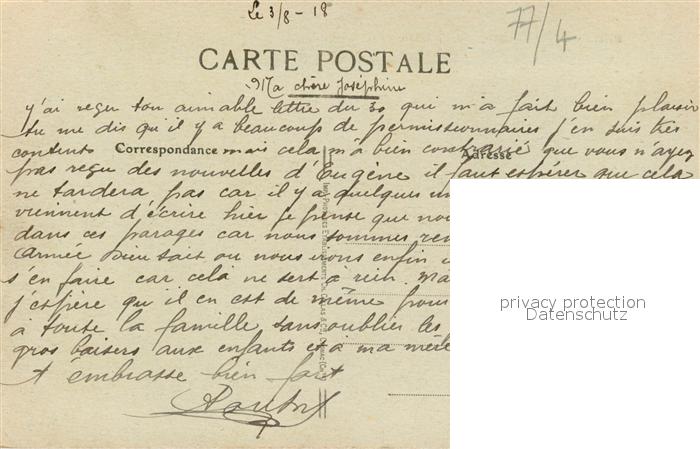 Le 3/8 - 18
77/4
CARTE POSTALE
Ma chère Joséphine
J'ai reçu ton aimable lettre du 30 qui m'a fait bien plaisir
tu me dis qu'il y a beaucoup de permissionnaires j'en suis très
contents mais cela m'a bien contrarié que vous n'ayez
Correspondance
Adresse
pas reçu des nouvelles d'Eugène il faut espérer que cela
ne tardera pas car il y a quelques un
viennent d'écrire hier je pense que nou
dans ces parages car nous sommes ren
armée Dieu sait ou nous irons enfin
s'en faire car cela ne sert à rien. Ma
j'espère qu'il en est de même pour
à toute la famille sans oublier les
gros baisers aux enfants et a ma
t'embrasse bien fort
privacy protection
Datenschutz